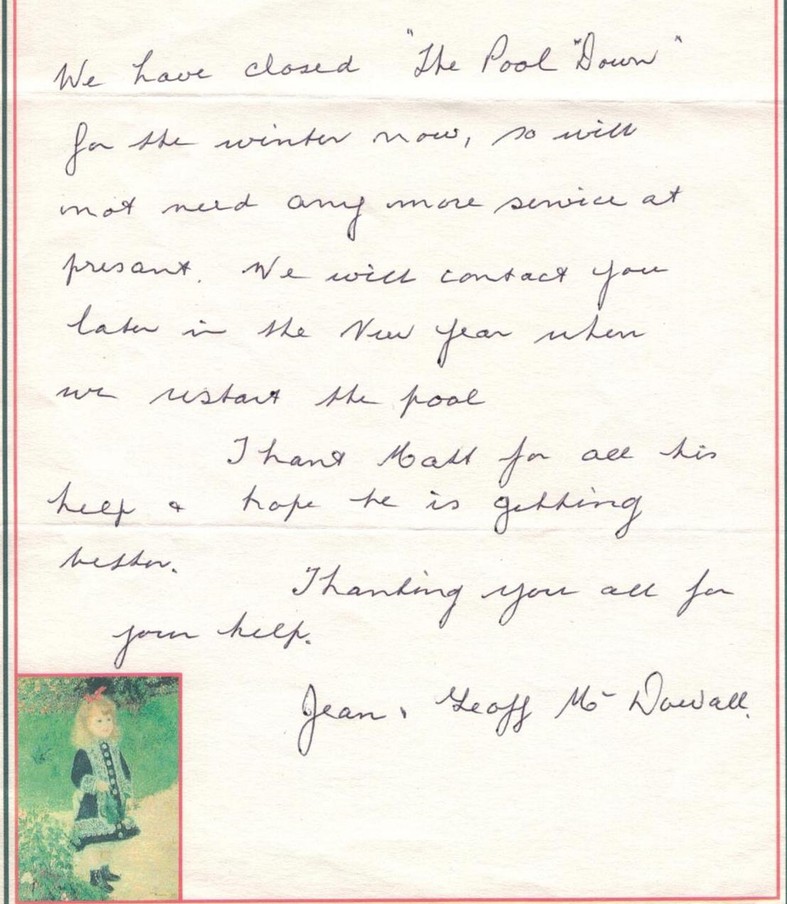 We have closed "The Pool "Down"
for the winter now, so will
not need any more service at
present. We will contact you
later in the New Year when
we restart the pool
Thank Matt for all his
help & hope he is getting
better.
Thanking you all for
your help.
Jean & Geoff Mc Dowall.